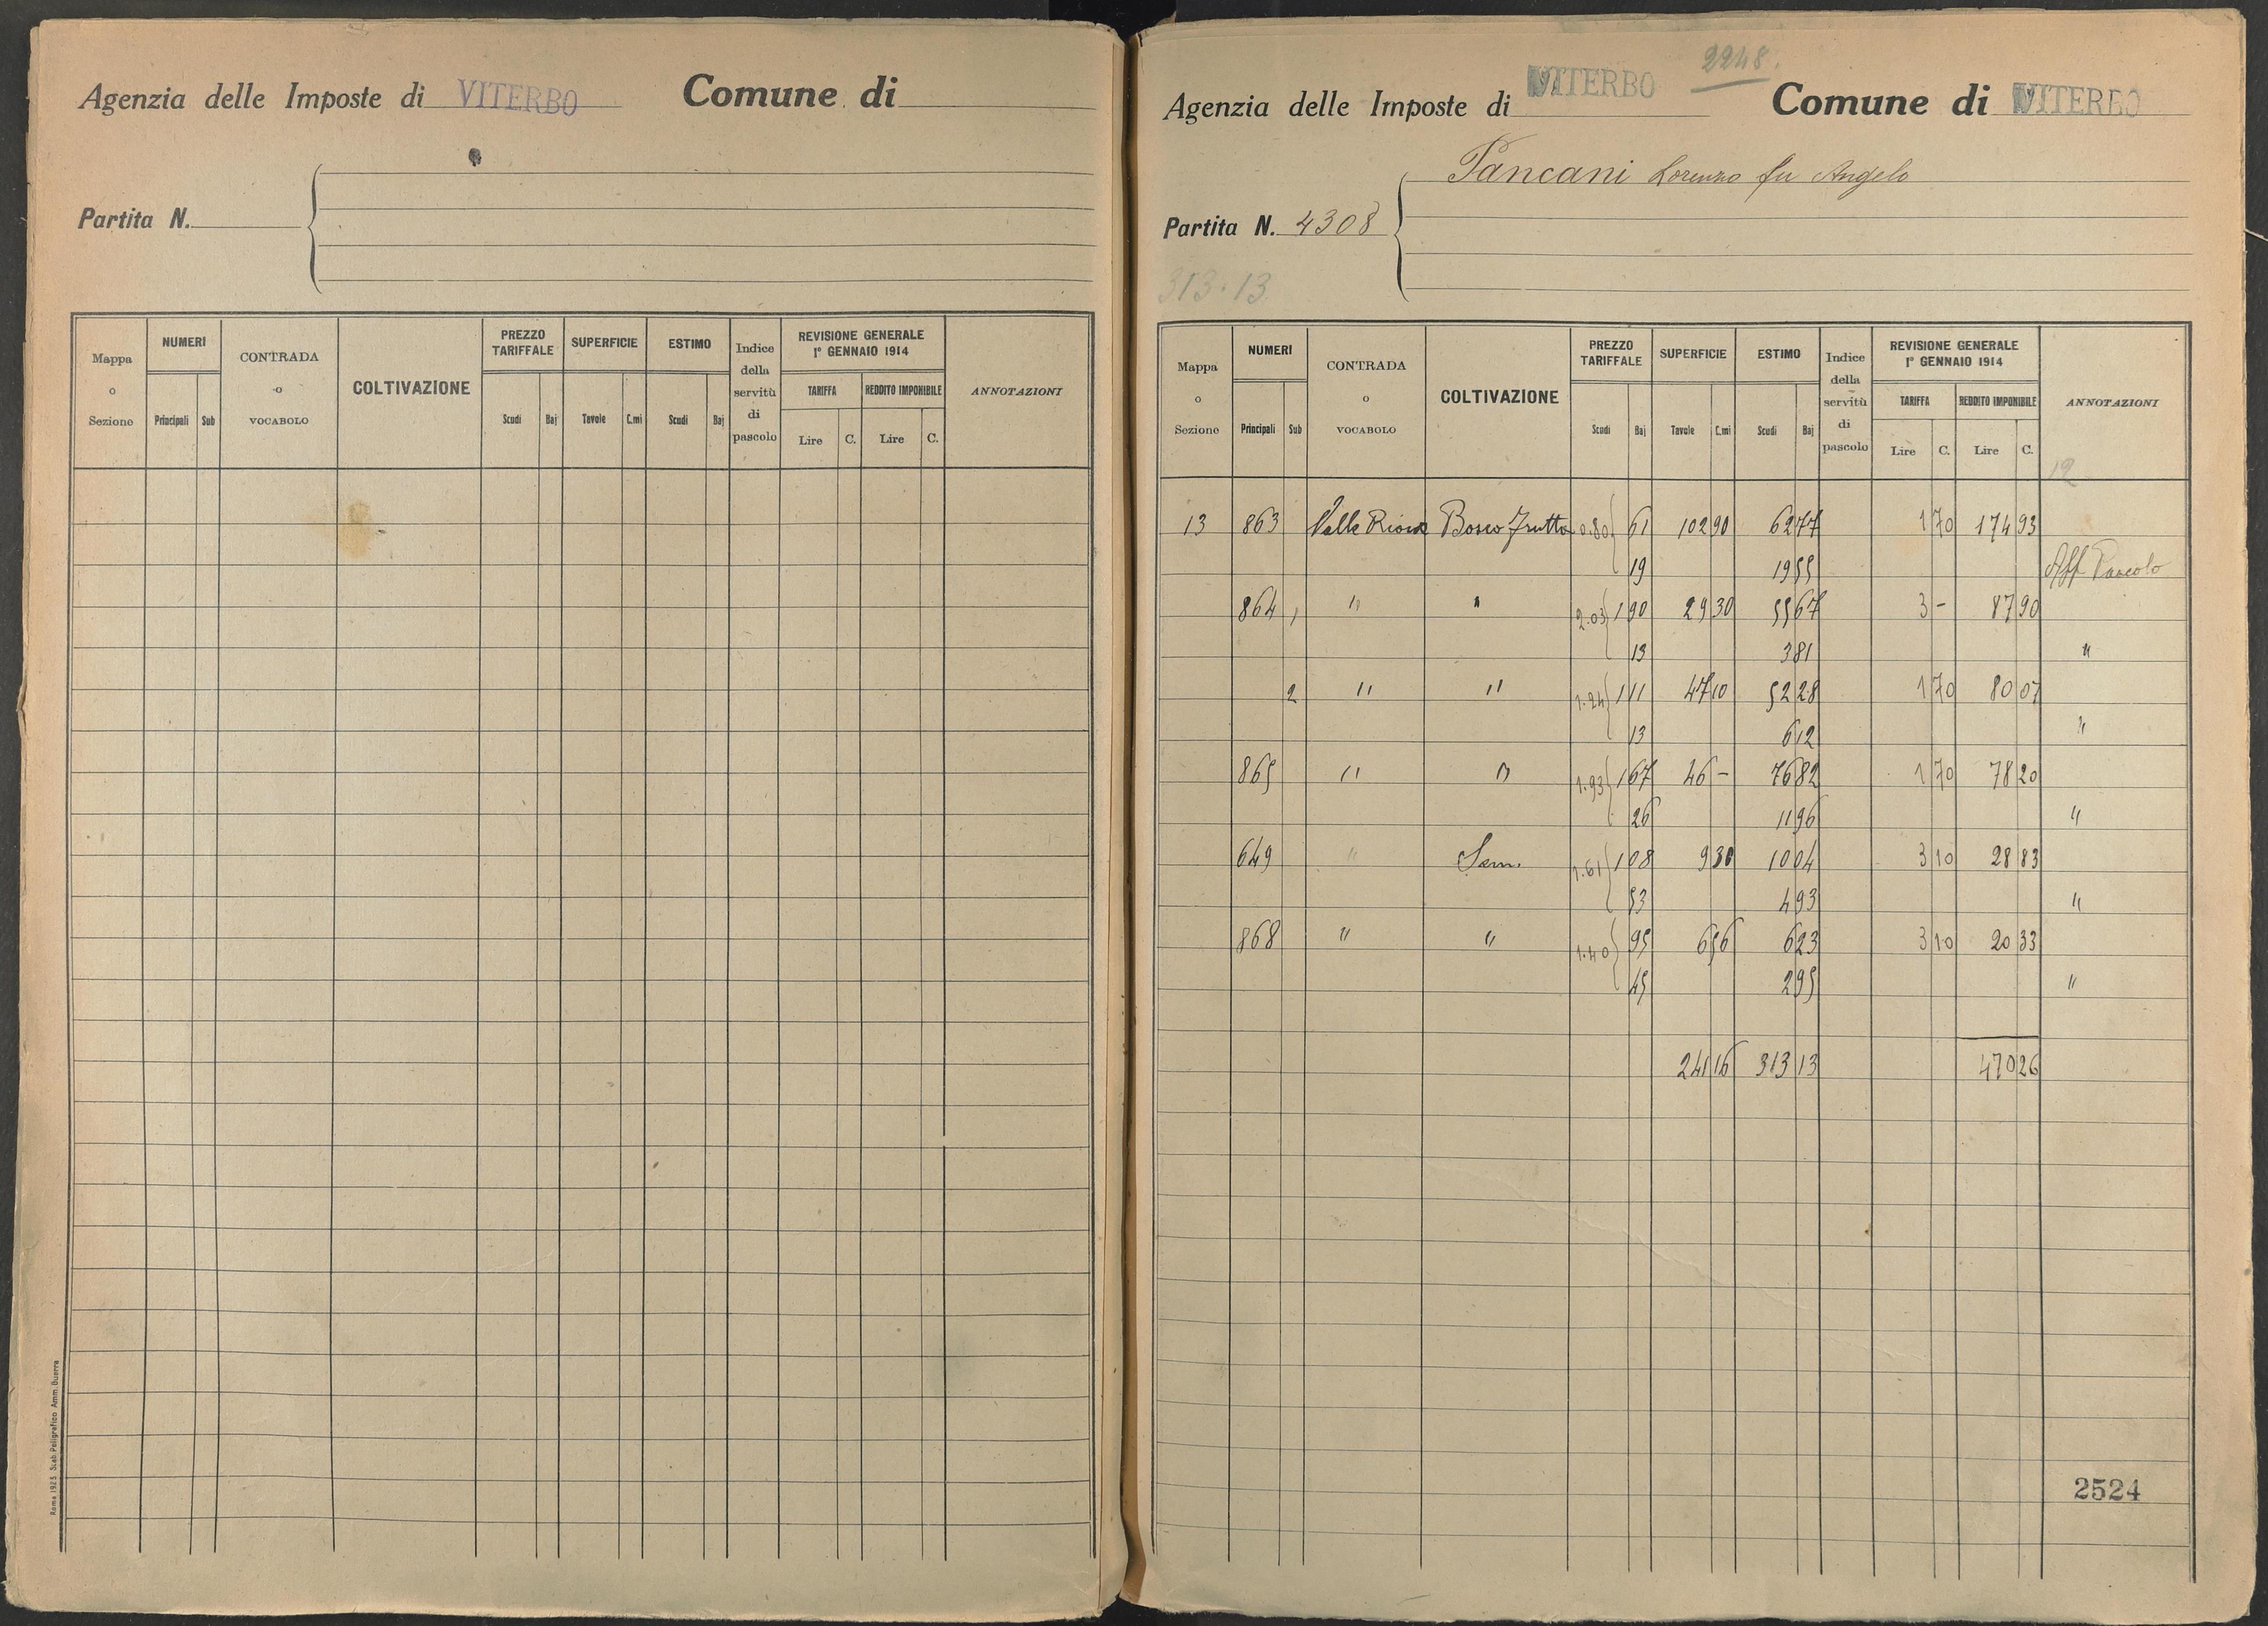 Agenzia delle Imposte di VITERBO Comune di
Partita N.
Mappa o Sezione NUMERI Principali Sub CONTRADA o VOCABOLO COLTIVAZIONE PREZZO TARIFFALE Scudi Baj SUPERFICIE Tavole C.mi ESTIMO Scudi Baj Indice della servitù di pascolo REVISIONE GENERALE 1° GENNAIO 1914 TARIFFA Lire C. REDDITO IMPONIBILE Lire C. ANNOTAZIONI
Roma 1923 Stab. Poligrafico Amm. Guerra
2248.
Agenzia delle Imposte di VITERBO Comune di VITERBO
Pancani Lorenzo fu Angelo
Partita N. 4308
313.13
Mappa o Sezione NUMERI Principali Sub CONTRADA o VOCABOLO COLTIVAZIONE PREZZO TARIFFALE Scudi Baj SUPERFICIE Tavole C.mi ESTIMO Scudi Baj Indice della servitù di pascolo REVISIONE GENERALE 1° GENNAIO 1914 TARIFFA Lire C. REDDITO IMPONIBILE Lire C. ANNOTAZIONI
12
13 863 Valle Bosco Frutto 0.80 61 102 90 62 77 1 70 174 93
19 19 55 Aff Pascolo
864 1 " " 2.03 1 90 29 30 55 67 3 - 87 90
13 3 81 "
2 " " 1.24 1 11 47 10 52 28 1 70 80 07
13 6 12 "
865 " " 1.93 1 67 46 - 76 82 1 70 78 20
26 11 96 "
649 " Sem. 1.61 1 08 9 30 10 04 3 10 28 83
53 4 93 "
868 " " 1.40 95 6 56 6 23 3 10 20 33
45 2 95 "
241 16 313 13 470 26
2524